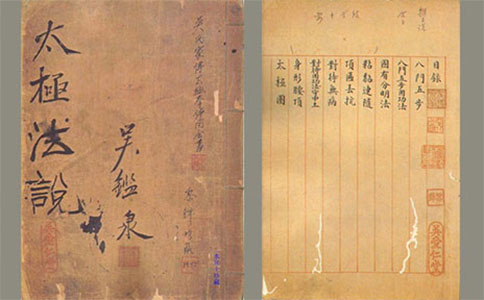 吳氏家傳太極拳體用全書
吳鑑泉
太極法說
目錄
八門五步
八門五步用功法
固有分明法
粘黏連隨
頂匾丟抗
對待無病
對待用功法守中土
身形腰頂
太極圈
吳愛仁堂